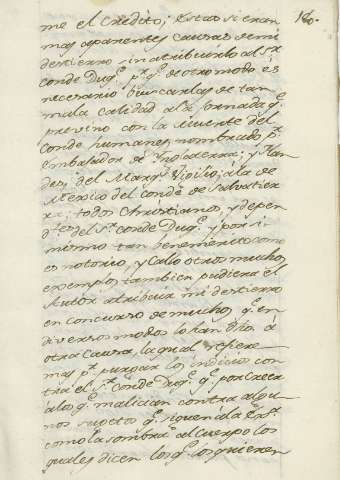 180.
me el Credito; estas si eran
mas aparentes causas de mi
destierro sin atribuirlo al sr
conde Duq.e pr q.e de otro modo és
necesario buscarlas de tan
mala calidad al la Jornada q.e
previno con la muerte del
Conde humanes, nombrado pr
embajador de Ynglaterra; y flan
des, del Marq.s Vigilio; á la de
Mexico del conde de Salvatier
ra; todos Christianos, y depen
d.tes del Sr. conde Duq.e y por si
mismo tan benemeritos como
es notorio, y callo otros muchos
exemplos, tambien pudiera el
Autor atribuir mi destierro
en concurso de muchos q.e en
diversos modos lo han dho á
otra causa, la qual refiere
mas pr purgar los indicios con
tra el Sr. conde Duq.e q.e por creer
a los q.e malician contra algu
nos sugetos q.e siguen á la Exa.
como la sombra al cuerpo los
quales dicen los q.e los quieren